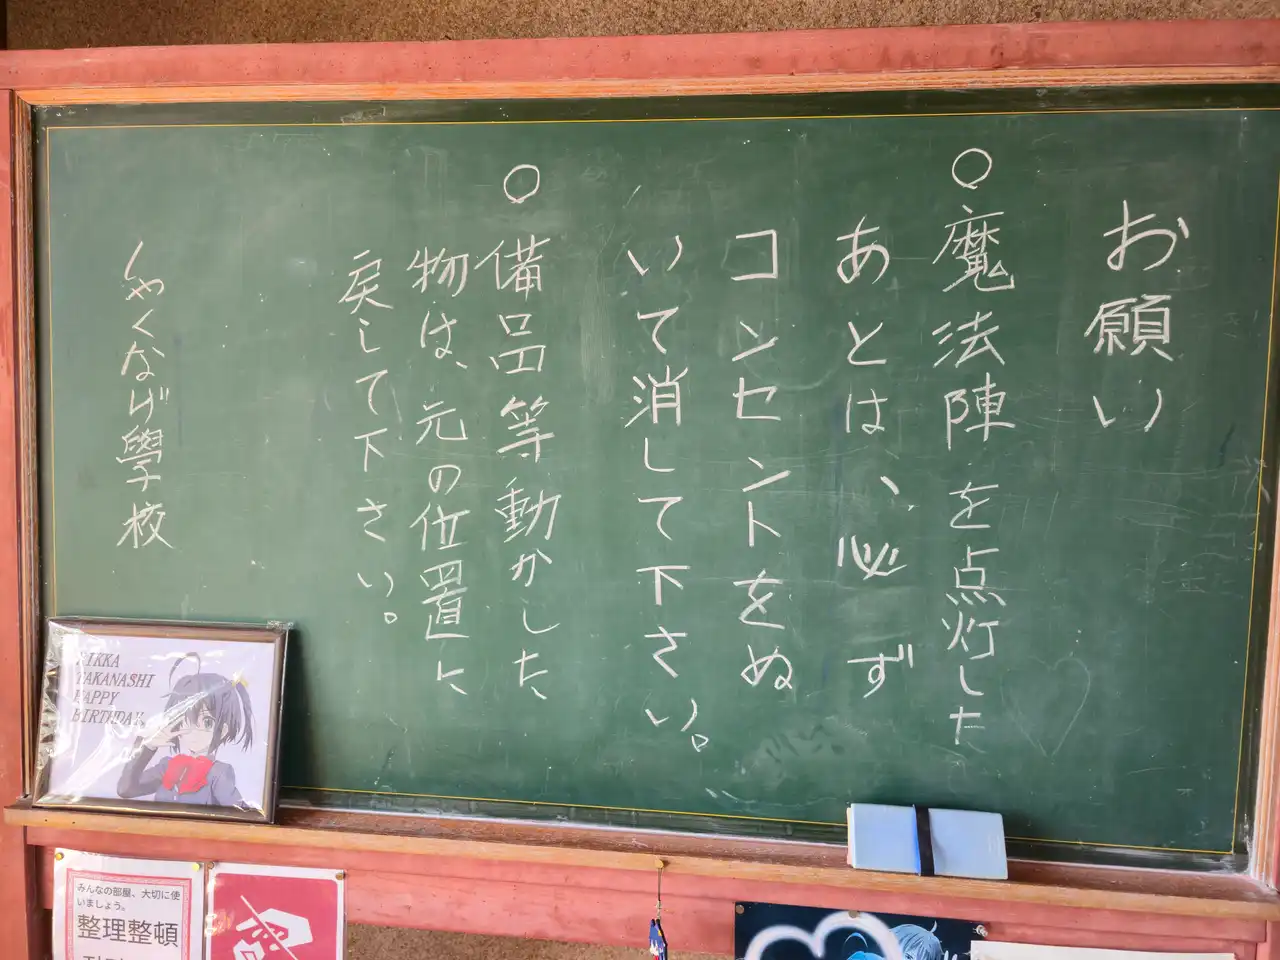 お願い
○魔法陣を点灯した
あとは、必ず
コンセントをぬ
いて消して下さい。
○備品等動かした、
物は、元の位置に、
戻して下さい。
しゃくなげ學校
RIKKA
TAKANASHI
HAPPY
BIRTHDAY
みんなの部屋、大切に使
いましょう。
整理整頓